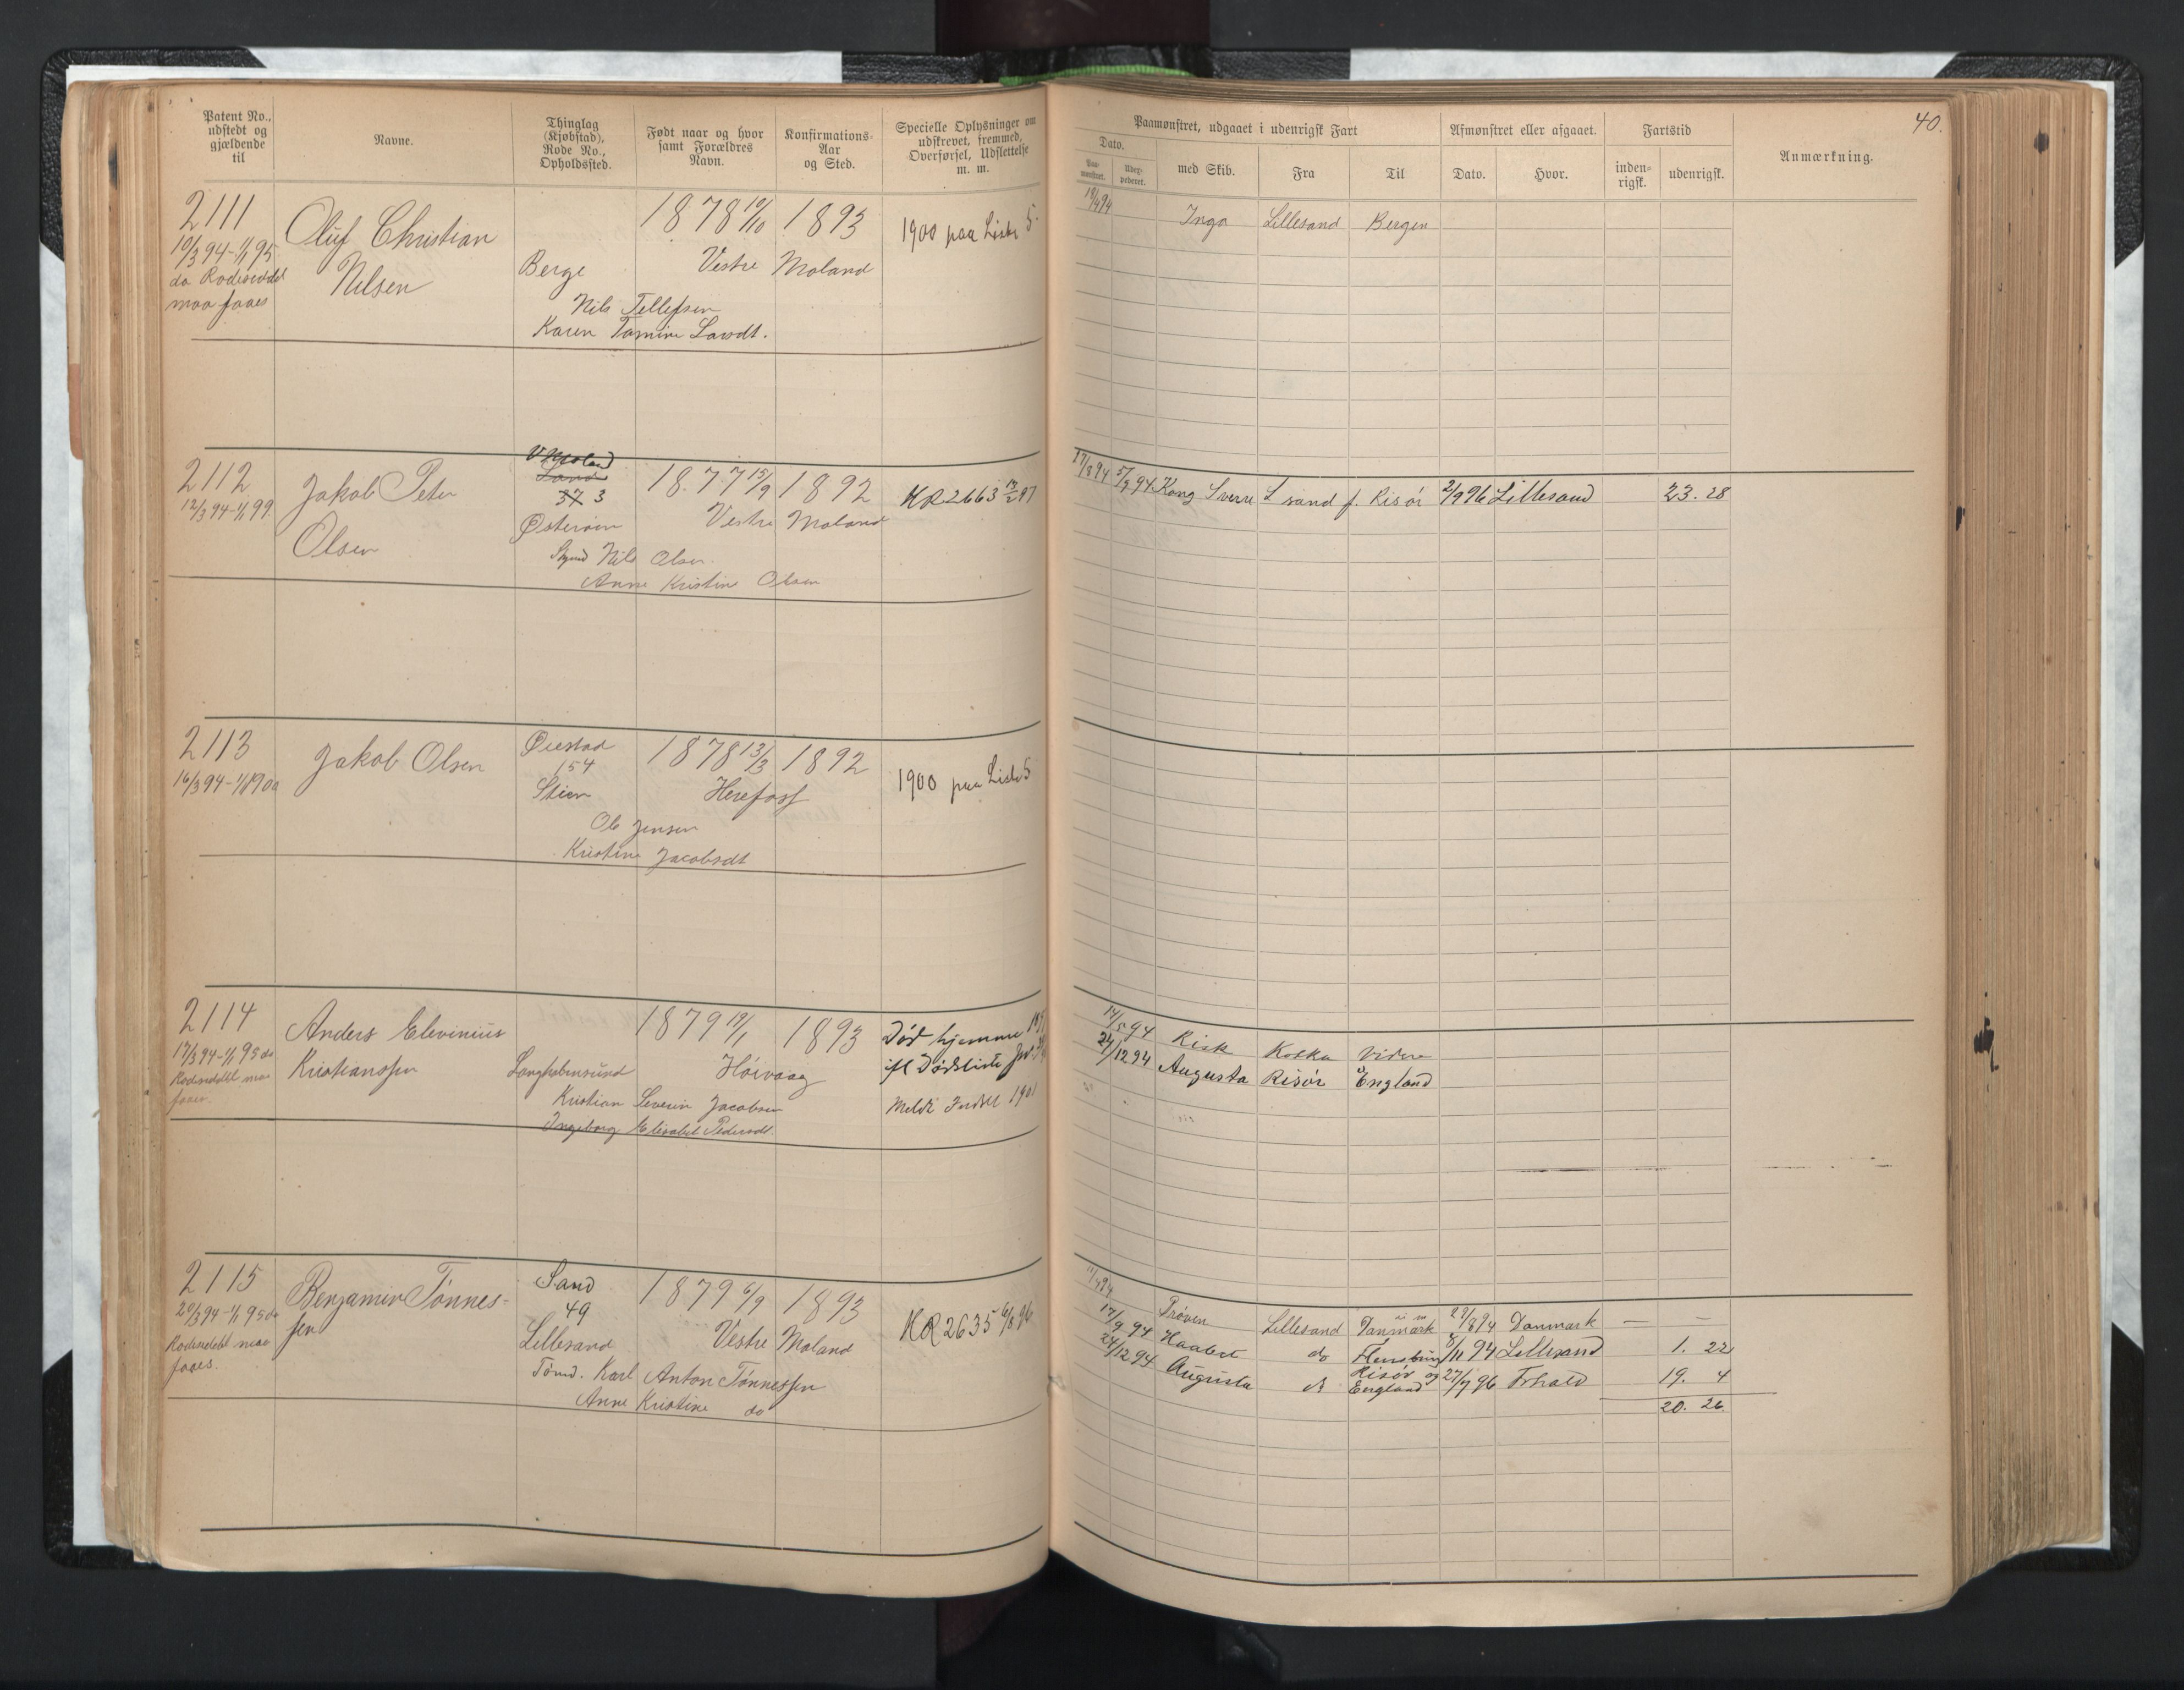 Patent No., udstedt og gjældende til
Navne.
Thinglag (Kjøbstad), Rode No., Opholdssted.
Født naar og hvor samt Forældres Navn.
Konfirmations-Aar og Sted.
Specielle Oplysninger om udskrevet, fremmed, Overførsel, Udslettelse m. m.
Paamønstret, udgaaet i udenrigsk Fart
Dato.
Paa-mønstret.
med Skib.
Fra
Til
Afmønstret eller afgaaet.
Dato.
Hvor.
Fartstid
inden-rigsk.
udenrigsk.
Anmærkning.
40.
2111
10/3 94-1/1 95
do Rodeseddel
maa faaes
Oluf Christian
Nilsen
Berge
1878 19/10
1893
Vestre Moland
Nils Tellefsen
Karen Tomine Larsdt.
1900 paa Liste 5
19/4 94
Inga
Lillesand
Bergen
2112
12/3 94-1/1 99
Jakob Peter
Olsen
V Moland
Sand
37 3
Østerøien
1877 15/9
1892
Vestre Moland
Nils Olsen
Anne Kristine Olsen
HR 2663 13/2 97
17/3 94
5/7 94
Kong Sverre
L sand f. Risør
2/9 96
Lillesand
23. 28
2113
16/3 94-1/1 1900
Jakob Olsen
Øiestad
154
Stien
1878 13/3
1892
Herefoss
Ole Jensen
Kristine Jacobsdt
1900 paa Liste 5
2114
17/3 94-1/1 95 do
Rodeseddel maa
faaes.
Anders Elevinius
Kristianssen
1879 19/1
1893
Høivaag
Kristian Severin Jacobsen
Ingeborg Elisabet Pedersdt.
Død hjemme
ifl Dødsliste
Meldt Indrul 1901
14/5 94
Risk
Videre
27/12 94
Augusta
Risør
England
2115
20/3 94-1/1 95 do
Rodeseddel maa
faaes.
Benjamin Tønnes-
sen
Sand
49
Lillesand
1879 6/9
1893
Vestre Moland
Tømd. Karl Anton Tønnessen
Anne Kristine do
HR 2635 6/8 96
11/4 94
Prøven
Lillesand
Danmark
29/8 94
Danmark
— —
17/9 94
Haabet
do
Flensburg
8/11 94
Lillesand
1. 22
27/12 94
Augusta
do
Risør og England
27/7 96
Frhald
19. 4
20. 26